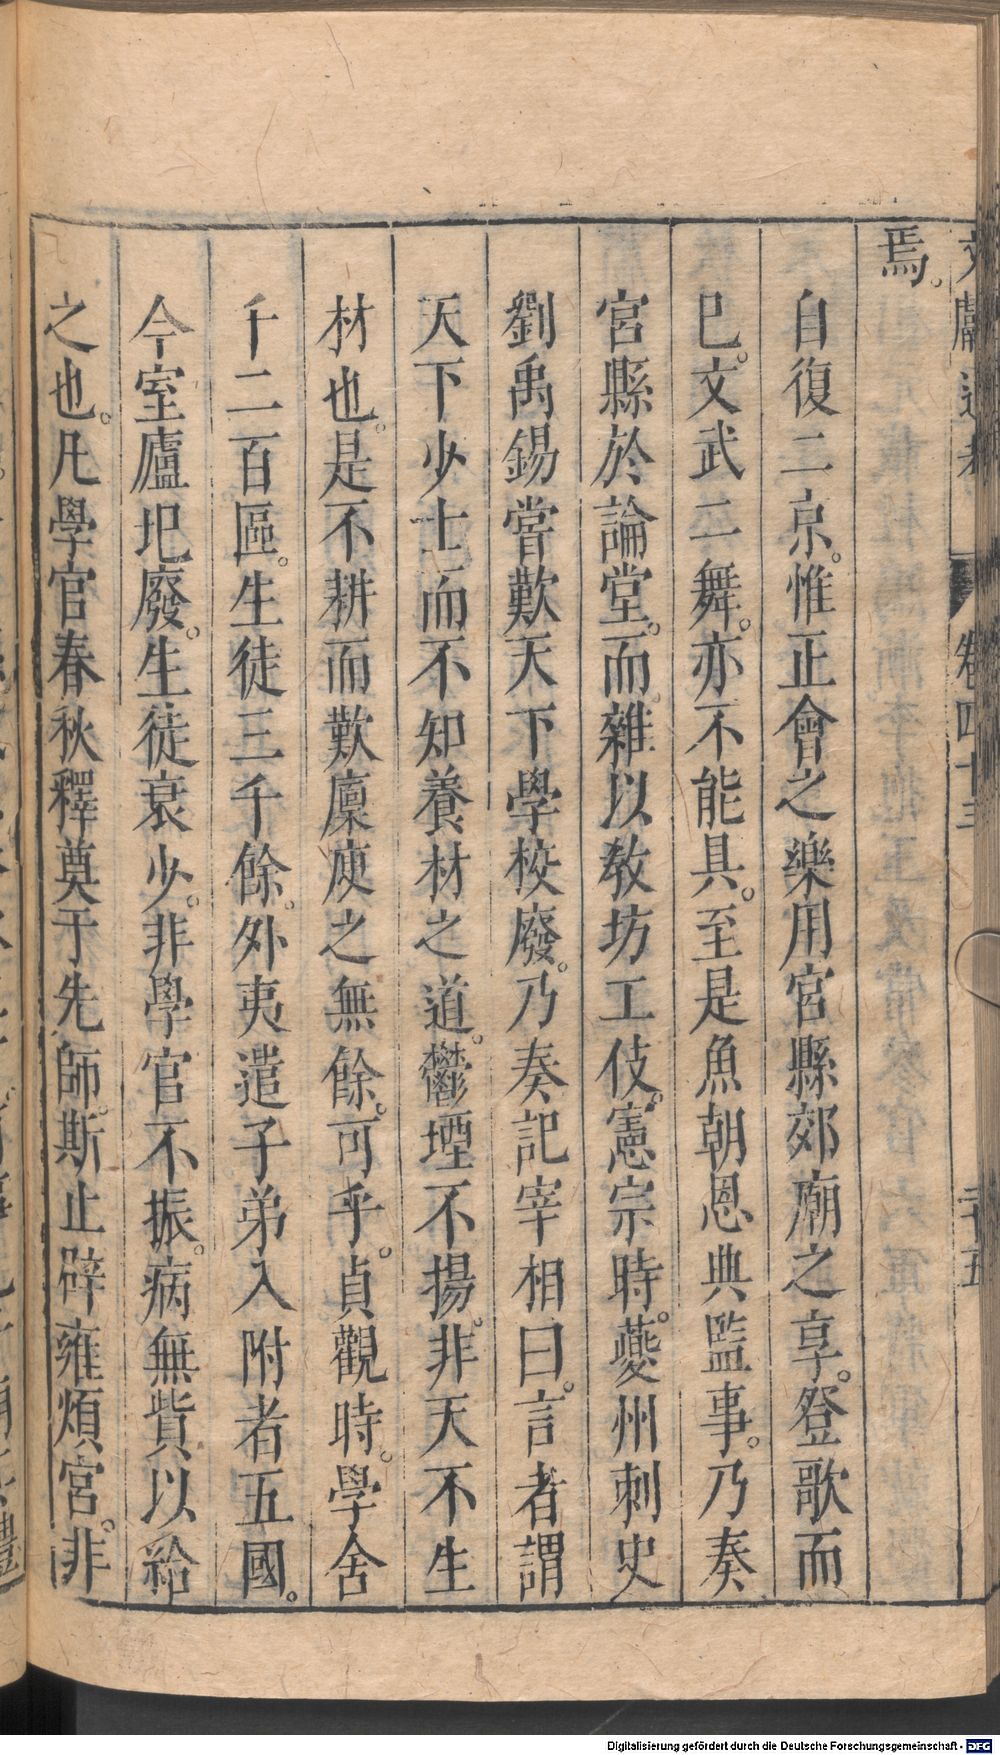 文獻通考 卷四十三 二十五
焉。
自復二京。惟正會之樂用宮縣郊廟之享。登歌而
已。文武二舞。亦不能具。至是魚朝恩典監事。乃奏
宮縣於論堂。而雜以教坊工伎。憲宗時。夔州刺史
劉禹錫嘗歎天下學校廢。乃奏記宰相曰。言者謂
天下少士而不知養材之道。鬱堙不揚。非天不生
材也。是不耕而歎廩庾之無餘。可乎。貞觀時。學舍
千二百區。生徒三千餘。外夷遣子弟入附者五國。
今室廬圯廢。生徒衰少。非學官不振。病無貲以給
之也。凡學官春秋釋奠于先師。斯止辟雍頖宮。非
Digitalisierung gefördert durch die Deutsche Forschungsgemeinschaft - DFG